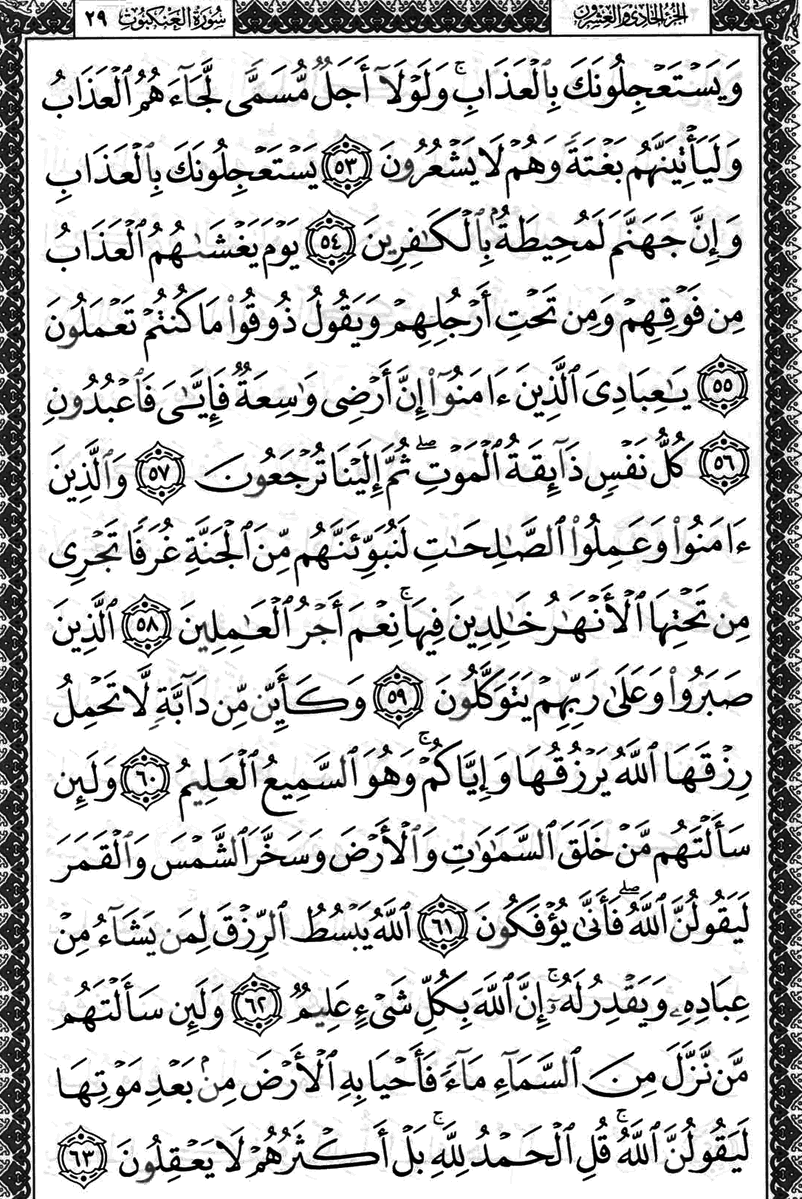 الجزء الحادي والعشرون
سورة العنكبوت ٢٩
وَيَسْتَعْجِلُونَكَ بِٱلْعَذَابِۚ وَلَوْلَآ أَجَلٌ مُّسَمًّى لَّجَآءَهُمُ ٱلْعَذَابُ
وَلَيَأْتِيَنَّهُم بَغْتَةً وَهُمْ لَا يَشْعُرُونَ ٥٣ يَسْتَعْجِلُونَكَ بِٱلْعَذَابِ
وَإِنَّ جَهَنَّمَ لَمُحِيطَةٌۢ بِٱلْكَٰفِرِينَ ٥٤ يَوْمَ يَغْشَىٰهُمُ ٱلْعَذَابُ
مِن فَوْقِهِمْ وَمِن تَحْتِ أَرْجُلِهِمْ وَيَقُولُ ذُوقُوا۟ مَا كُنتُمْ تَعْمَلُونَ
٥٥ يَٰعِبَادِىَ ٱلَّذِينَ ءَامَنُوٓا۟ إِنَّ أَرْضِى وَٰسِعَةٌ فَإِيَّٰىَ فَٱعْبُدُونِ
٥٦ كُلُّ نَفْسٍ ذَآئِقَةُ ٱلْمَوْتِۖ ثُمَّ إِلَيْنَا تُرْجَعُونَ ٥٧ وَٱلَّذِينَ
ءَامَنُوا۟ وَعَمِلُوا۟ ٱلصَّٰلِحَٰتِ لَنُبَوِّئَنَّهُم مِّنَ ٱلْجَنَّةِ غُرَفًا تَجْرِى
مِن تَحْتِهَا ٱلْأَنْهَٰرُ خَٰلِدِينَ فِيهَاۚ نِعْمَ أَجْرُ ٱلْعَٰمِلِينَ ٥٨ ٱلَّذِينَ
صَبَرُوا۟ وَعَلَىٰ رَبِّهِمْ يَتَوَكَّلُونَ ٥٩ وَكَأَيِّن مِّن دَآبَّةٍ لَّا تَحْمِلُ
رِزْقَهَا ٱللَّهُ يَرْزُقُهَا وَإِيَّاكُمْۚ وَهُوَ ٱلسَّمِيعُ ٱلْعَلِيمُ ٦٠ وَلَئِن
سَأَلْتَهُم مَّنْ خَلَقَ ٱلسَّمَٰوَٰتِ وَٱلْأَرْضَ وَسَخَّرَ ٱلشَّمْسَ وَٱلْقَمَرَ
لَيَقُولُنَّ ٱللَّهُۖ فَأَنَّىٰ يُؤْفَكُونَ ٦١ ٱللَّهُ يَبْسُطُ ٱلرِّزْقَ لِمَن يَشَآءُ مِنْ
عِبَادِهِۦ وَيَقْدِرُ لَهُۥٓۚ إِنَّ ٱللَّهَ بِكُلِّ شَىْءٍ عَلِيمٌ ٦٢ وَلَئِن سَأَلْتَهُم
مَّن نَّزَّلَ مِنَ ٱلسَّمَآءِ مَآءً فَأَحْيَا بِهِ ٱلْأَرْضَ مِنۢ بَعْدِ مَوْتِهَا
لَيَقُولُنَّ ٱللَّهُۚ قُلِ ٱلْحَمْدُ لِلَّهِۚ بَلْ أَكْثَرُهُمْ لَا يَعْقِلُونَ ٦٣